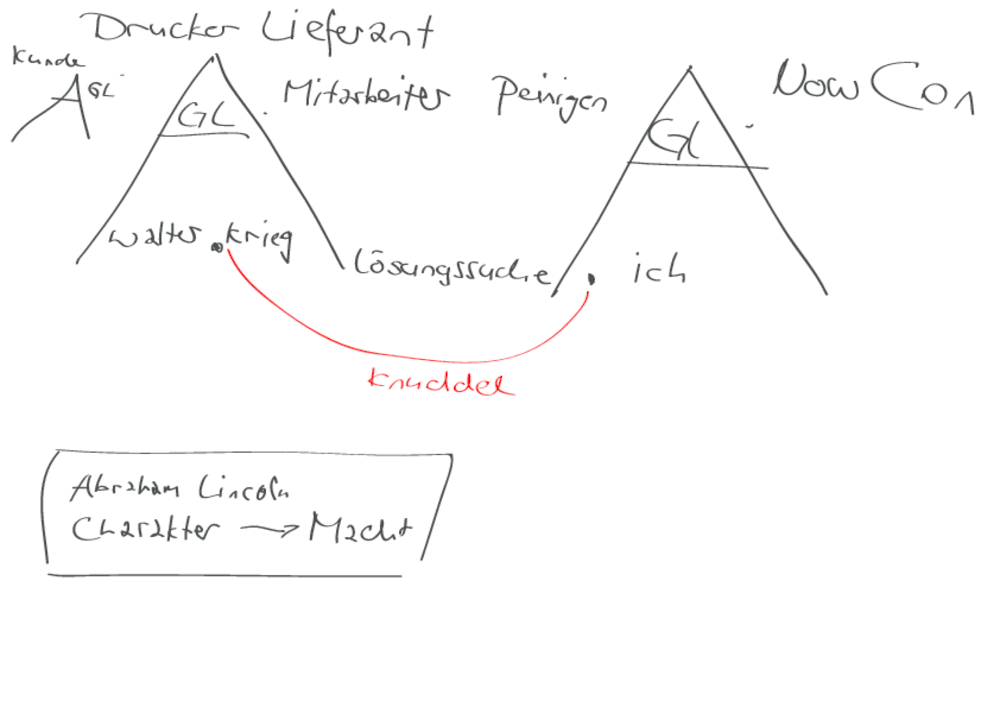 Drucker Lieferant
Kunde
GL
GL
Mitarbeiter Peinigen
NowCon
GL
Walter Krieg
Lösungssuche
ich
Knuddel
Abraham Lincoln
Charakter → Macht